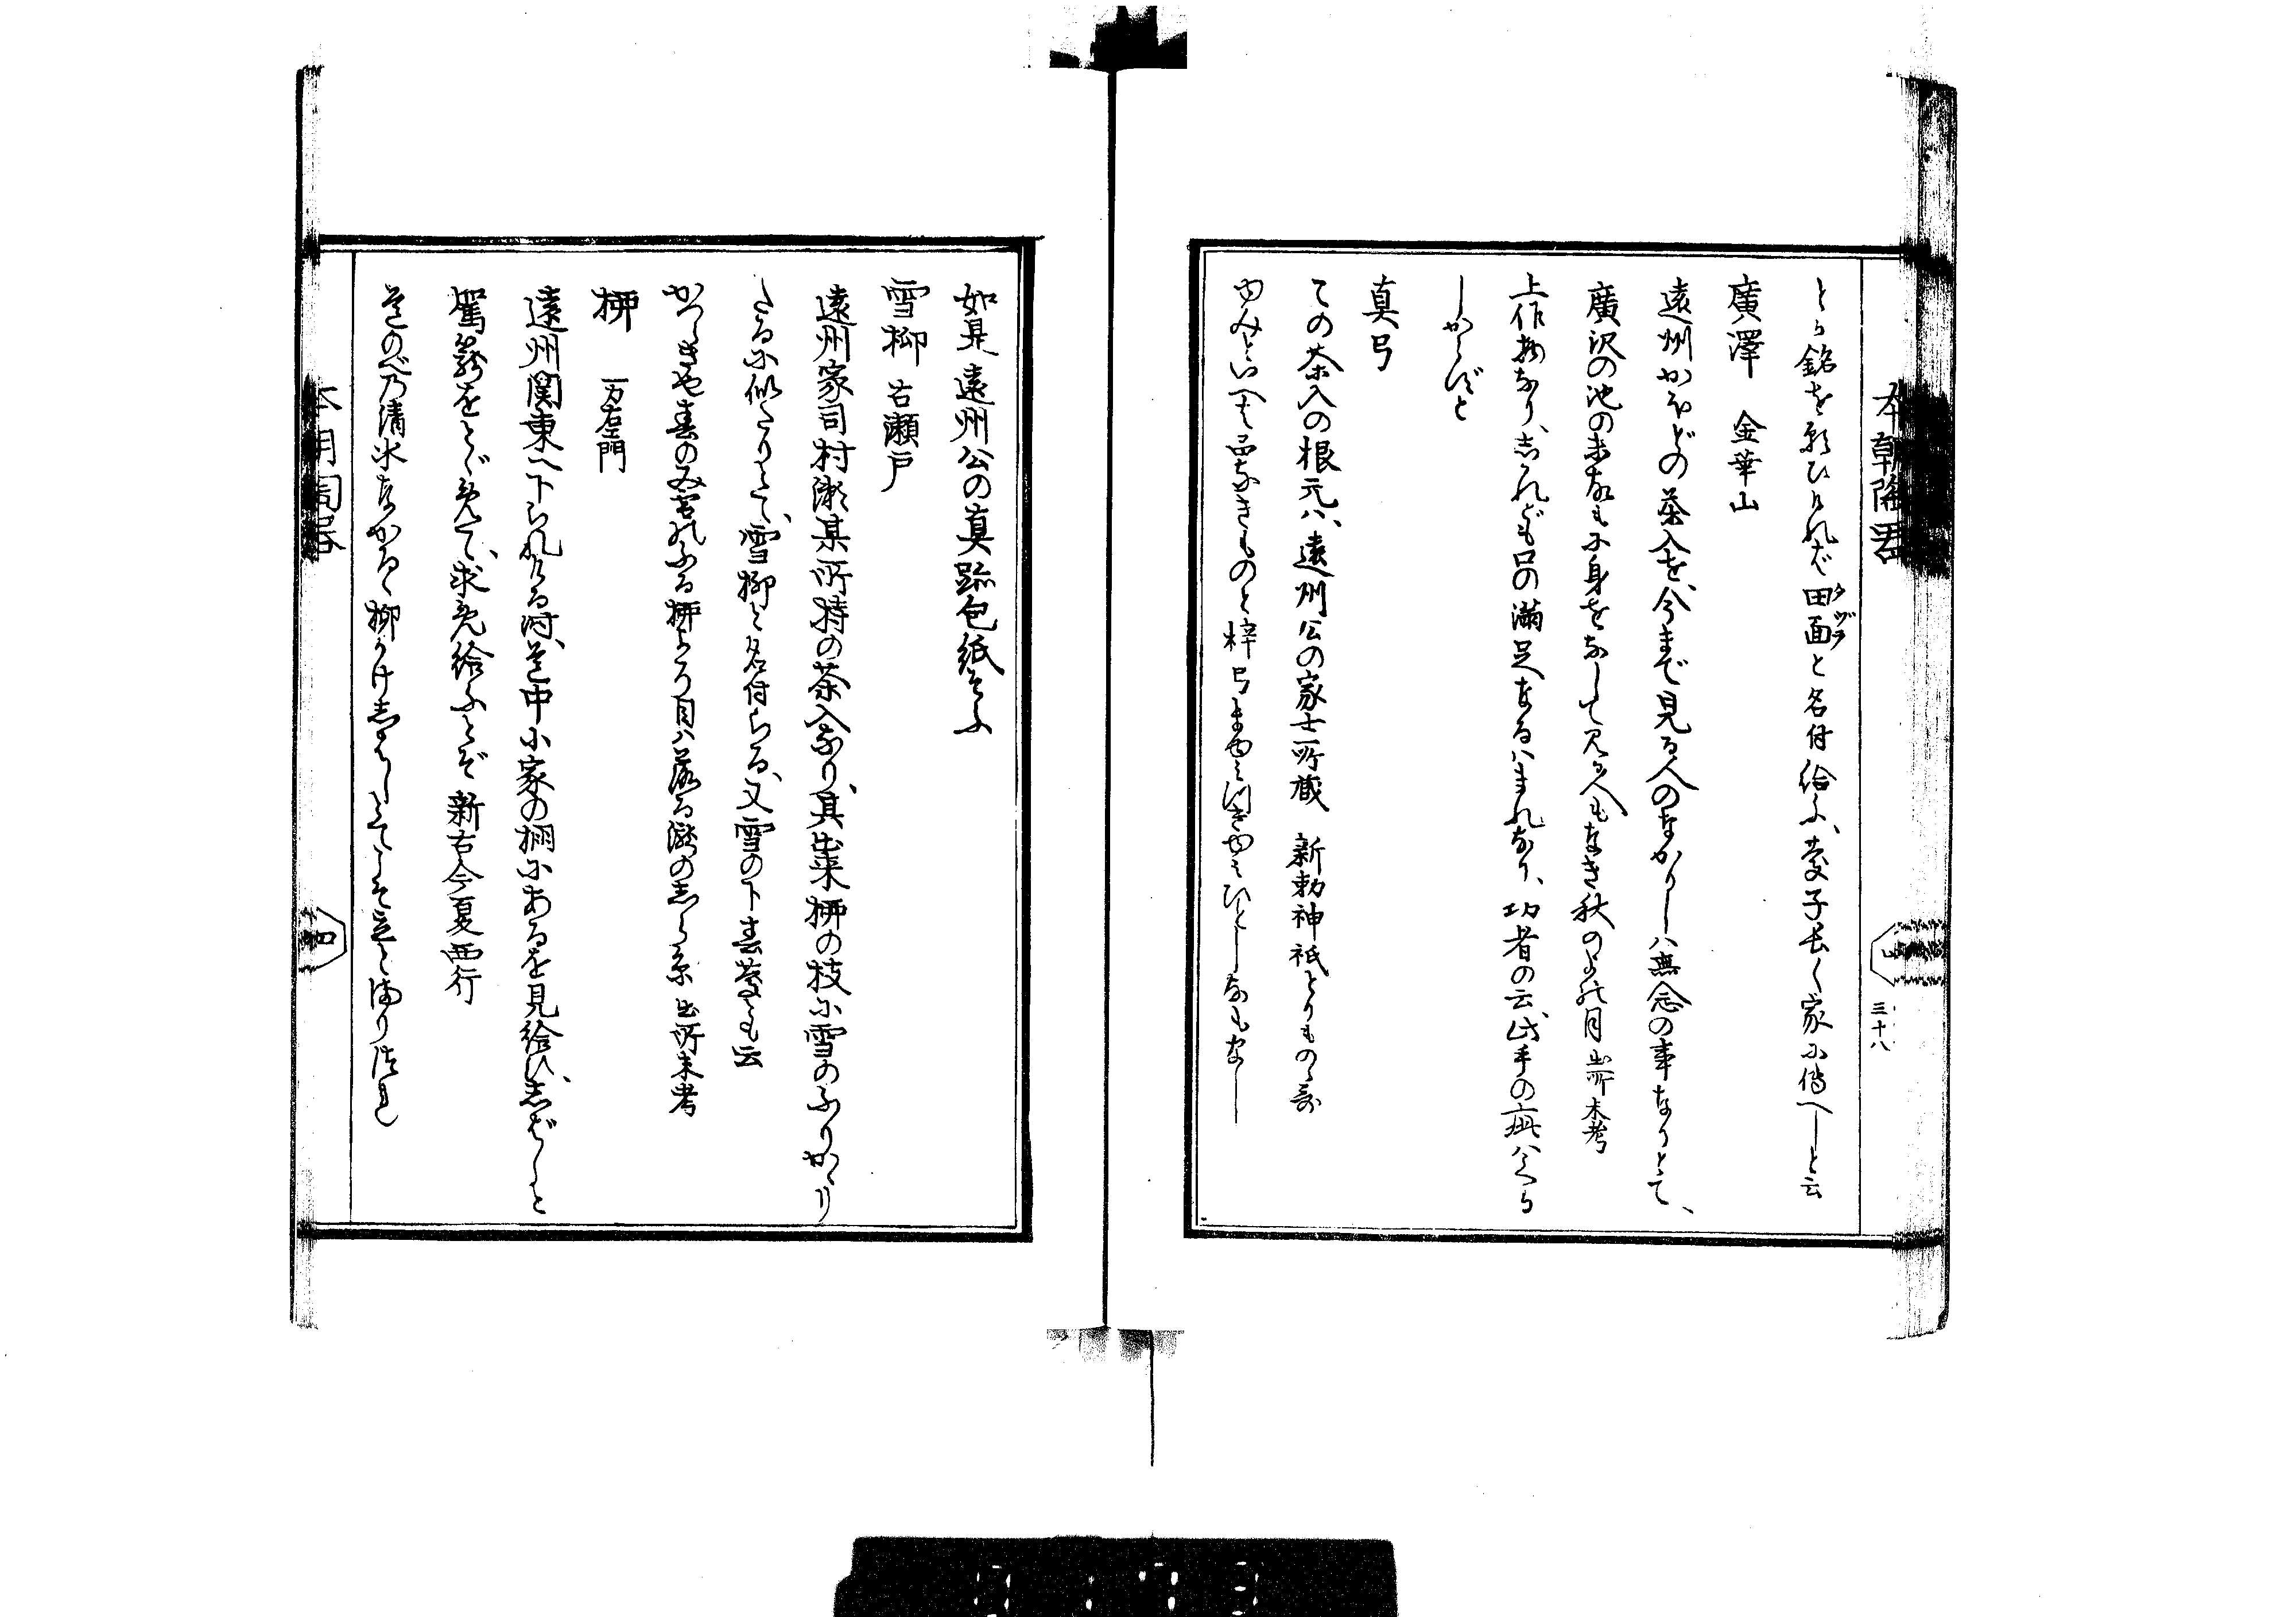 本朝陶器
三十八
とら銘を願ひけれど田面と名付給ふ、菱子長く家に傳へしと云
タヅラ
廣澤 金華山
遠州かほどの茶入を、今まで見る人のなかりしハ無念の事なりとて、
廣沢の池の面に身をなして見る人もなき秋の夜の月 出所未考
上作物なり、志かれども口の満足なるハまれなり、功者の云、此手の疵ハくるら
しからずと
真弓
この茶入の根元ハ、遠州公の家士所蔵 新勅神祇とりもの哥
ゆみといへは品なきものと梓弓ま弓つき弓ひとしなもなし
如是遠州公の真跡包紙そふ
雪柳 古瀬戸
遠州家司村瀬某所持の茶入なり、其出来柳の枝に雪のふりかゝり
たるに似たりとて、雪柳と名付らる、又雪の下春菱とも云
かつらきや春のみ雪のふる柳より目ハ落る瀧のしら糸 出所未考
柳 一万右衛門
遠州関東へ下られける時、道中小家の棚にあるを見給ひ、志ばしと
駕籠をとゞめて、求め給ふとぞ 新古今夏西行
道のべ乃清水ながるゝ柳かけ志はしとてこそ立とまりつれ